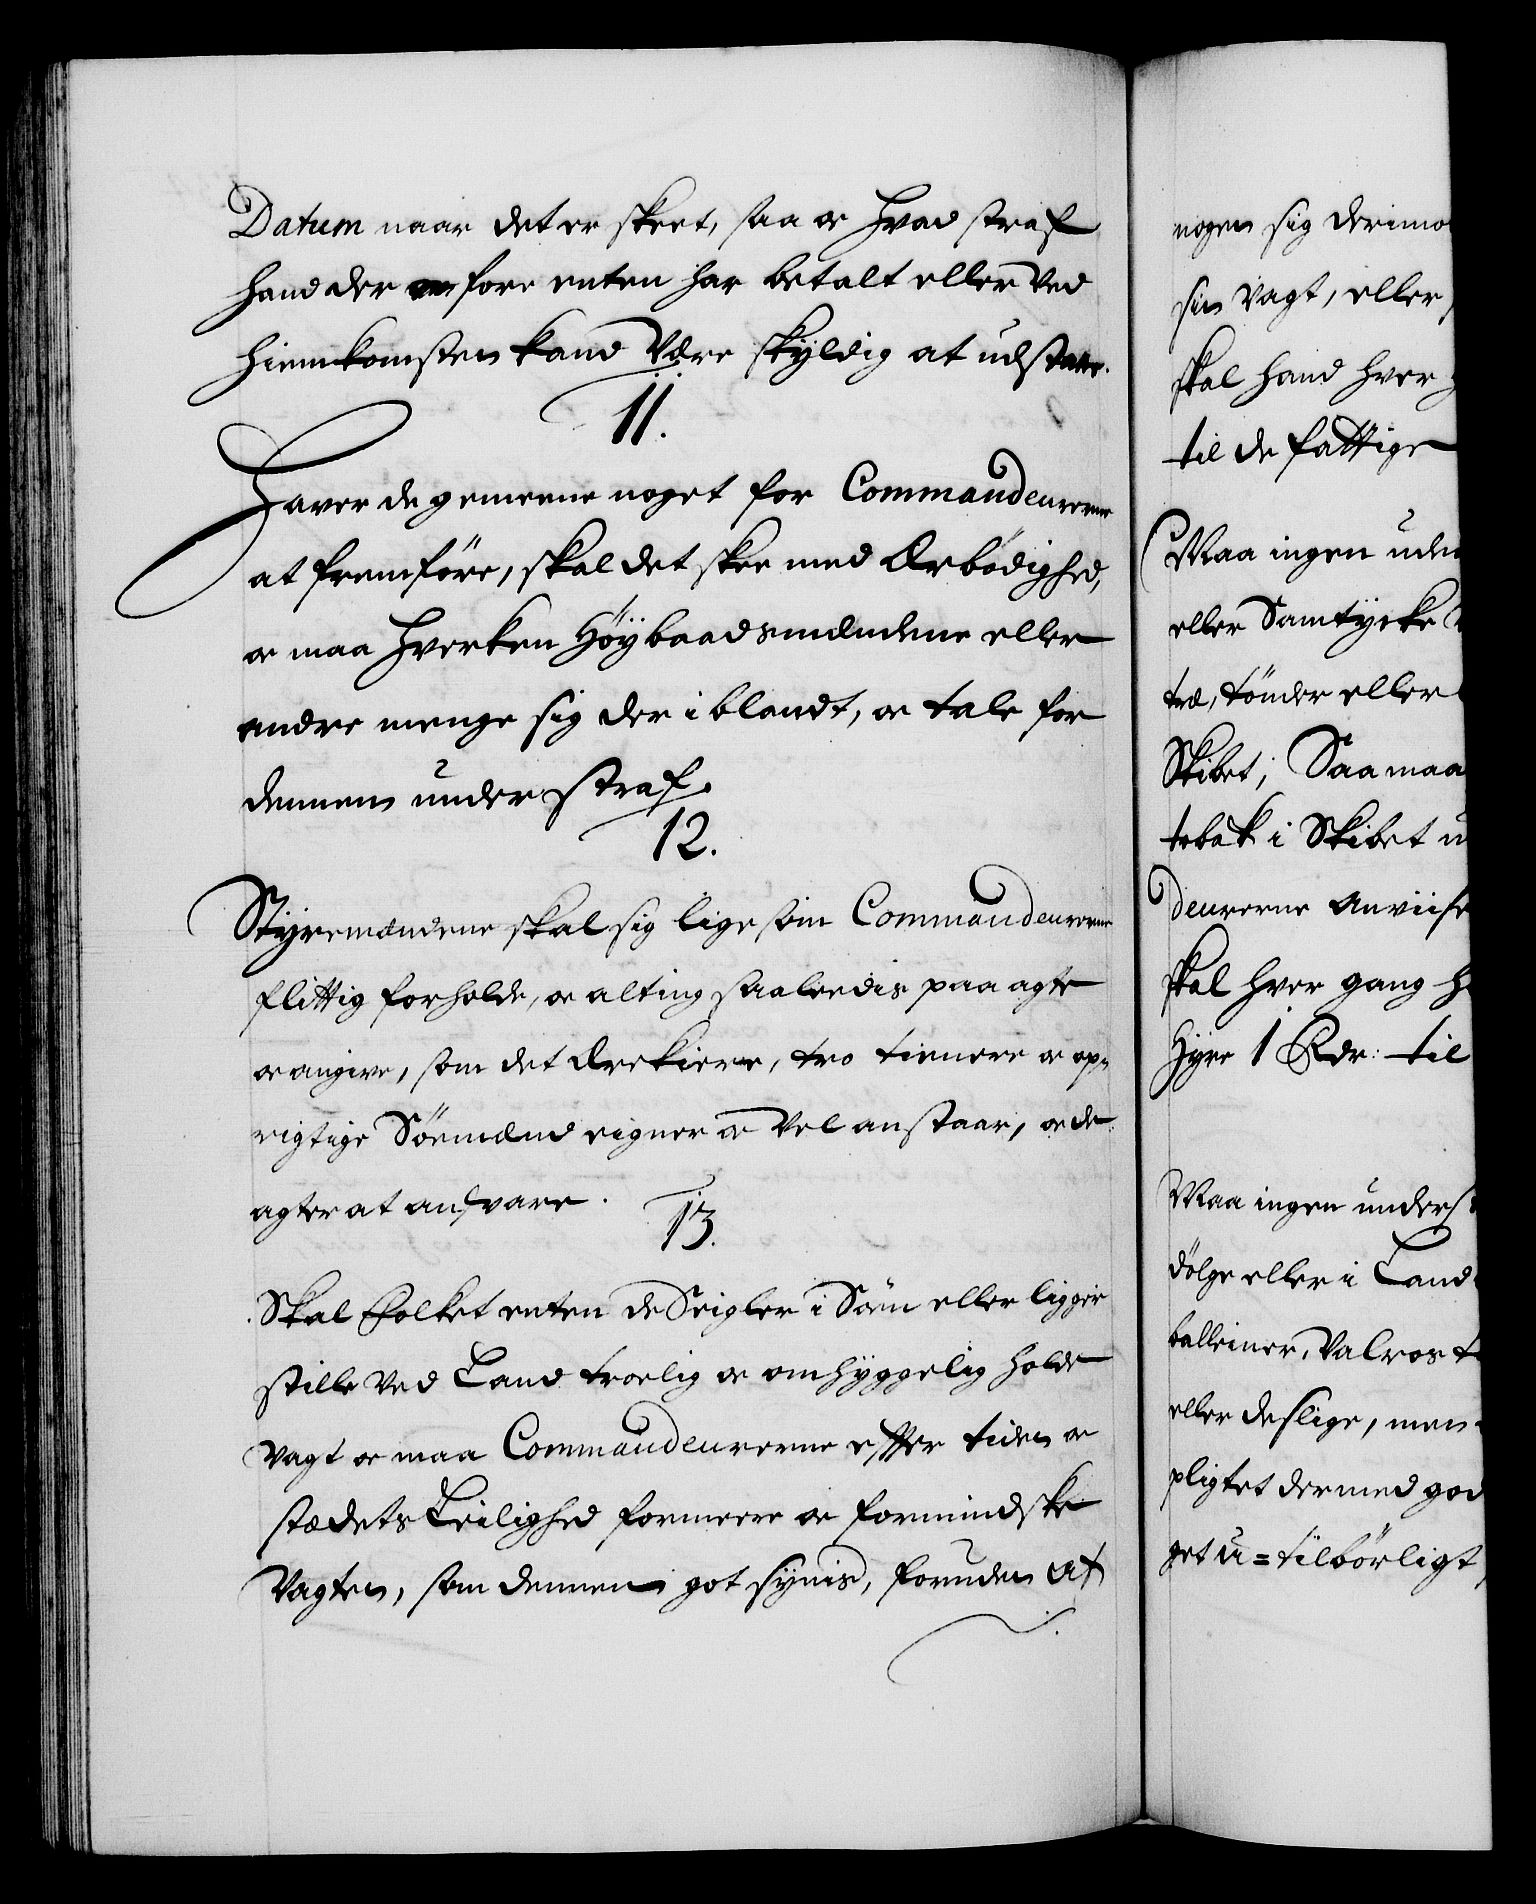 Datum naar det er skeet, saa oc hvad straf
hand der fore enten har betalt eller ved
hiemkomsten kand være skyldig at udstaae.
11.
Haver de gemeene noget for Commandeurerne
at fremføre, skal det skee med Ærbødighed,
oc maa hverken Høybaadsmændene eller
andre menge sig der iblandt, oc tale for
dennem under straf.
12.
Styremændene skal sig lige som Commandeurerne
flittig forholde, oc alting saaleedis paa agte
oc angive, som det ærekiere, tro tienere oc op-
rigtige Søemænd eigner oc vel anstaar, oc de
agter at ansvare.
13.
Skal Folket enten de Seigler i Søen eller ligger
stille ved Land troelig oc omhyggelig holde
vagt oc maa Commandeurerne efter tiden oc
stædets Leilighed formeere oc formindske
Vagten, som dennem got synis, foruden at
nogen sig derimo
sin vagt, eller
skal hand hver
til de fattige
Maa ingen uden
eller Samtycke
træ, tønder eller
Skibet; Saa maa
tobak i Skibet u
deurerne anviise
skal hver gang h
Hyre 1 Rdr: til
Maa ingen under
dølge eller i Land
balleiner, Valros t
eller deslige, men
pligtet dermed god
get u=tilbørligt